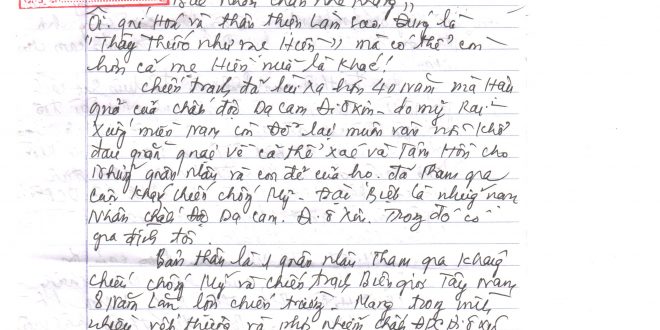 Ôi quý Hoá và thân thiện Làm sao. Đúng là
"Thầy Thuốc như mẹ Hiền" mà có thể còn
hơn cả mẹ Hiền nữa là khác!
Chiến tranh đã lùi xa hơn 40 Năm mà Hậu
quả của chất độc Dạ cam Đi-ôxin - do mỹ Rải
Xuống miền Nam còn Để lại muôn vàn nỗi khổ
đau về cả thể xác và Tâm Hồn cho
Những quân Nhân và con đẻ của họ đã Tham gia
cuộc kháng chiến chống Mỹ. Đặc Biệt là những nạn
Nhân chất Độ Dạ cam. Đ. ô Xin. Trong đó có
gia đình tôi.
Bản thân là 1 quân nhân Tham gia Kháng
chiến chống Mỹ và chiến tranh Biên giới Tây Nam
8 Năm Lăn lộn chiến trường. Mang trong mình
nhiều vết thương và nhiễm chất ĐDC Đi-ôxin